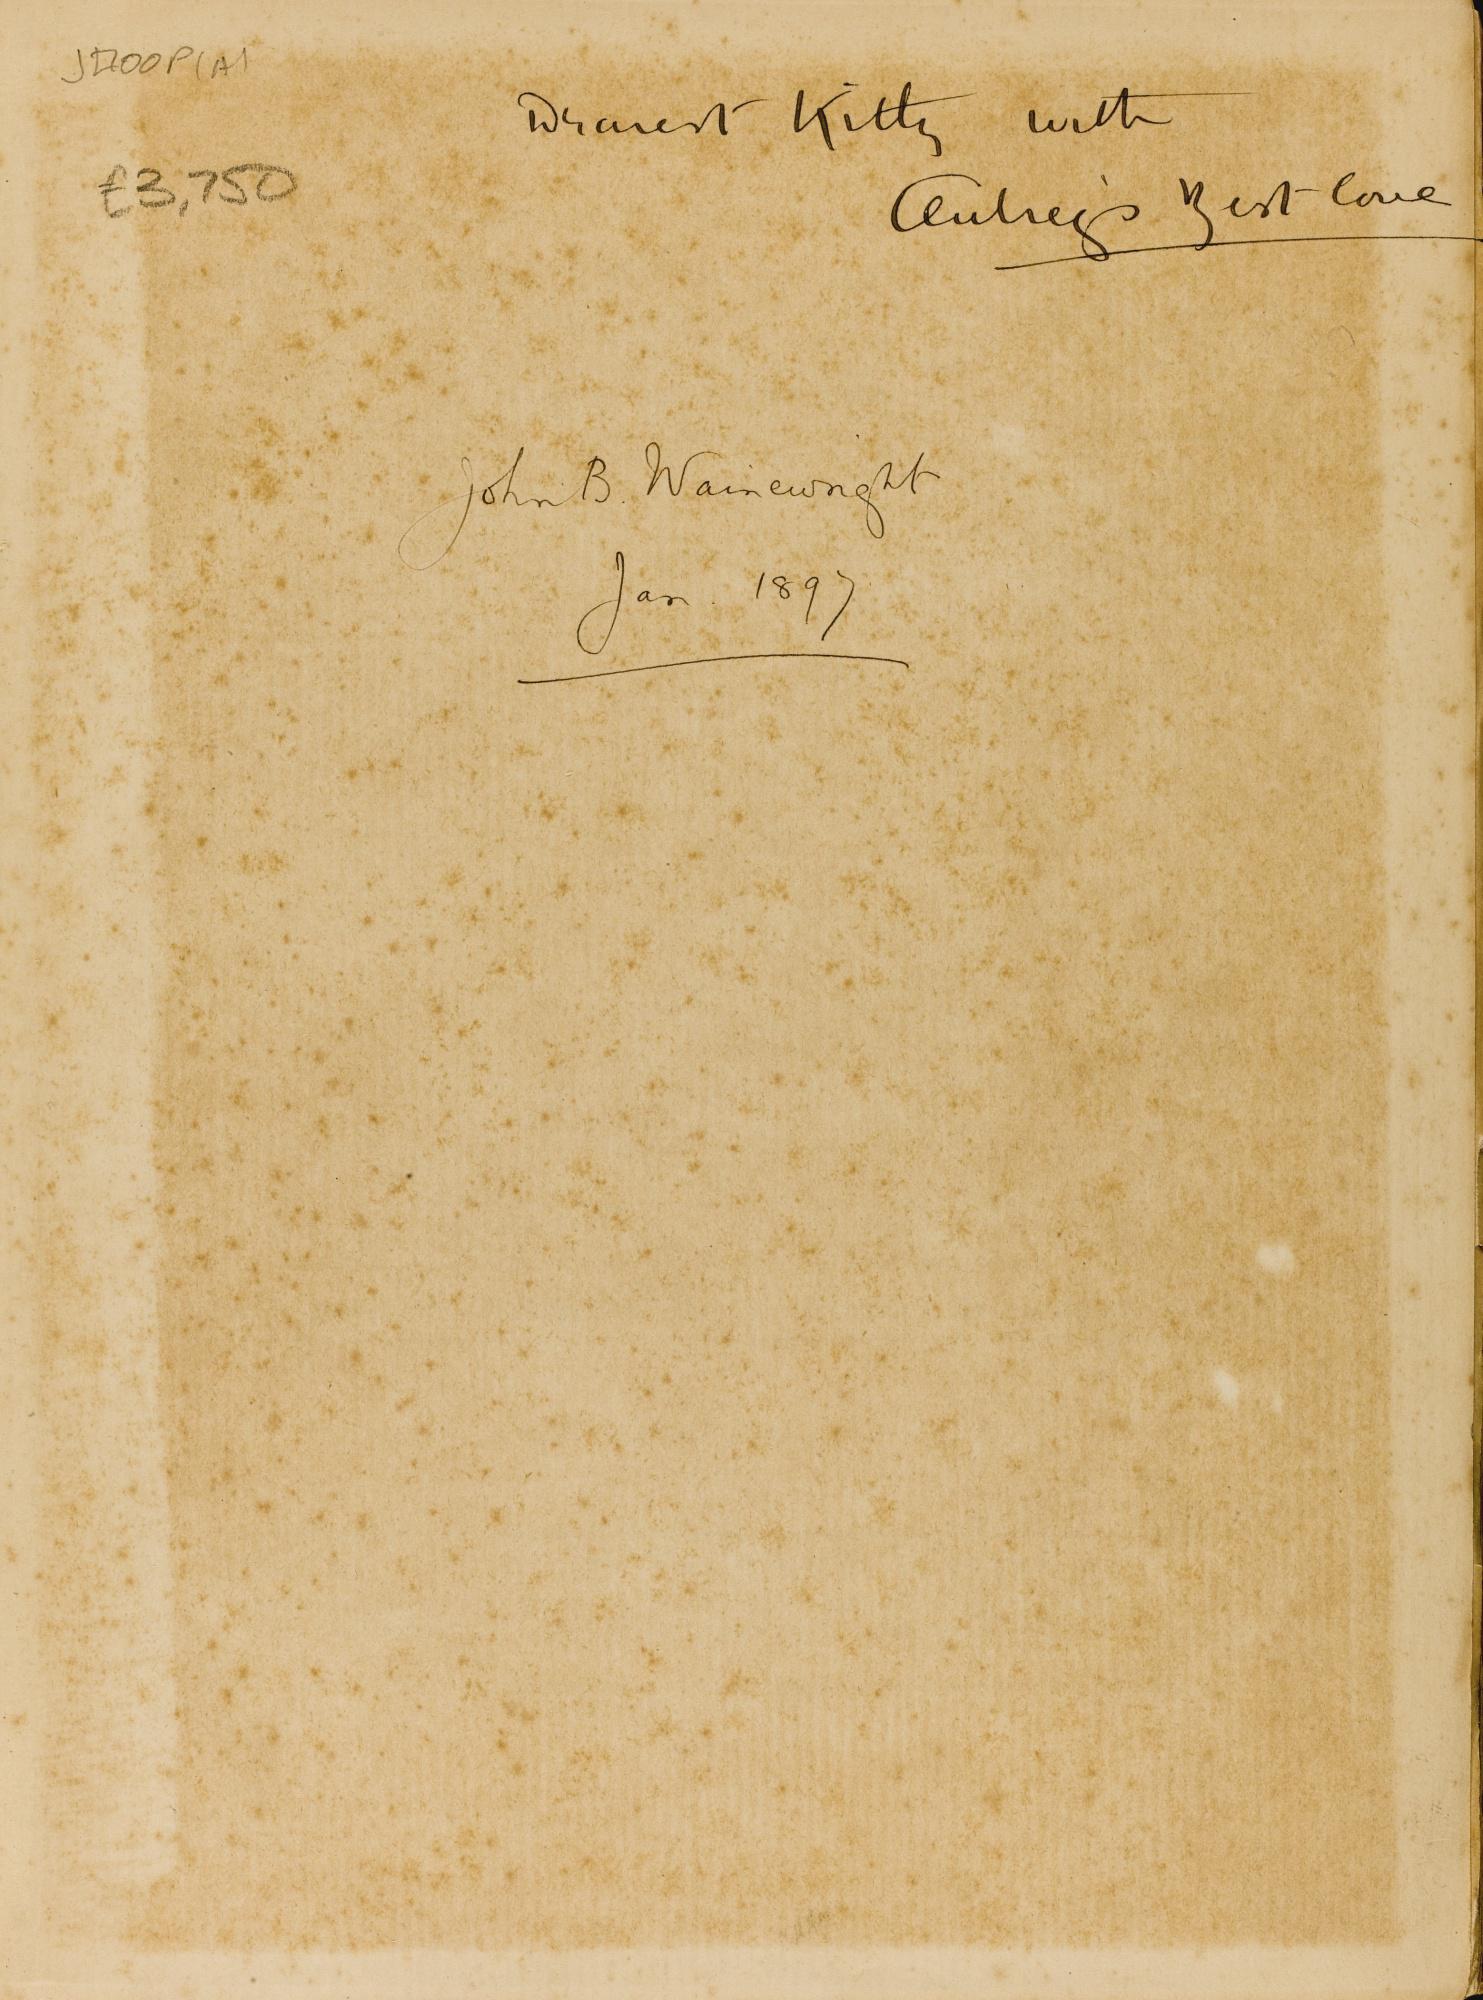 £3,750
Dearest Kitty with
Aubrey's Best love
John B. Wainewright
Jan. 1897